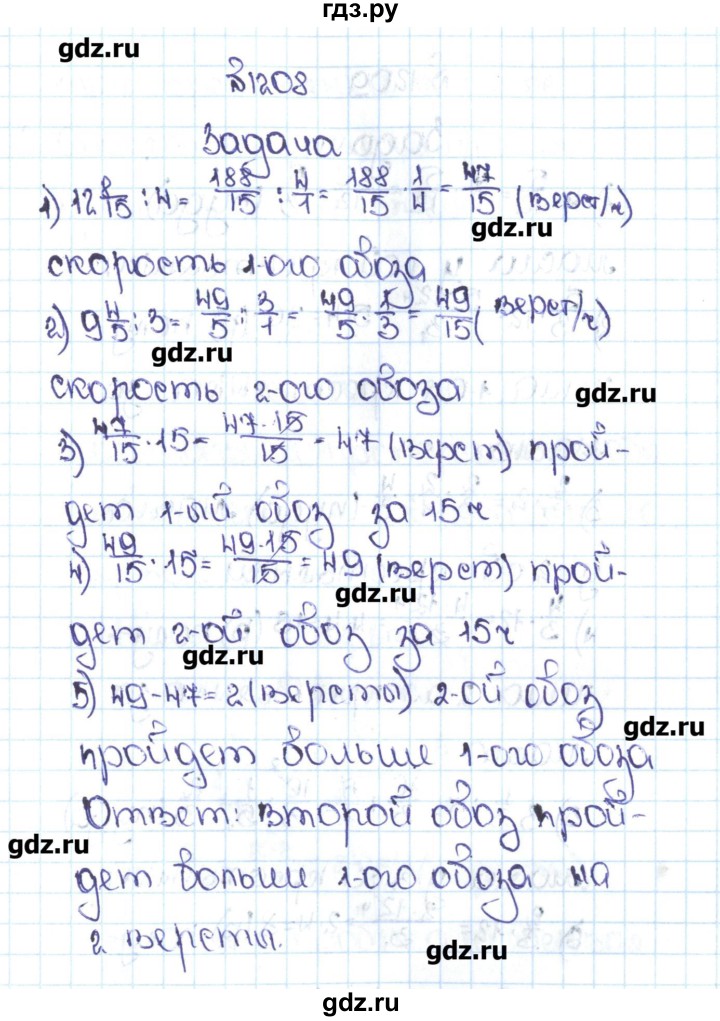 гдз.ру
gdz.ru
№1208
Задача
1) 12 8/15 : 4 = 188/15 : 4/1 = 188/15 · 1/4 = 47/15 (верст/ч)
gdz.ru
скорость 1-ого обоза
2) 9 4/5 : 3 = 49/5 : 3/1 = 49/5 · 1/3 = 49/15 (верст/ч)
gdz.ru
скорость 2-ого обоза
gdz.ru
3) 47/15 · 15 = 47·15/15 = 47 (верст) прой-
дет 1-ый обоз за 15ч
4) 49/15 · 15 = 49·15/15 = 49 (верст) прой-
gdz.ru
дет 2-ой обоз за 15ч
gdz.ru
5) 49-47=2 (версты) 2-ой обоз
gdz.ru
пройдет больше 1-ого обоза
Ответ: второй обоз прой-
gdz.ru
дет больше 1-ого обоза на
2 версты.
gdz.ru
gdz.ru